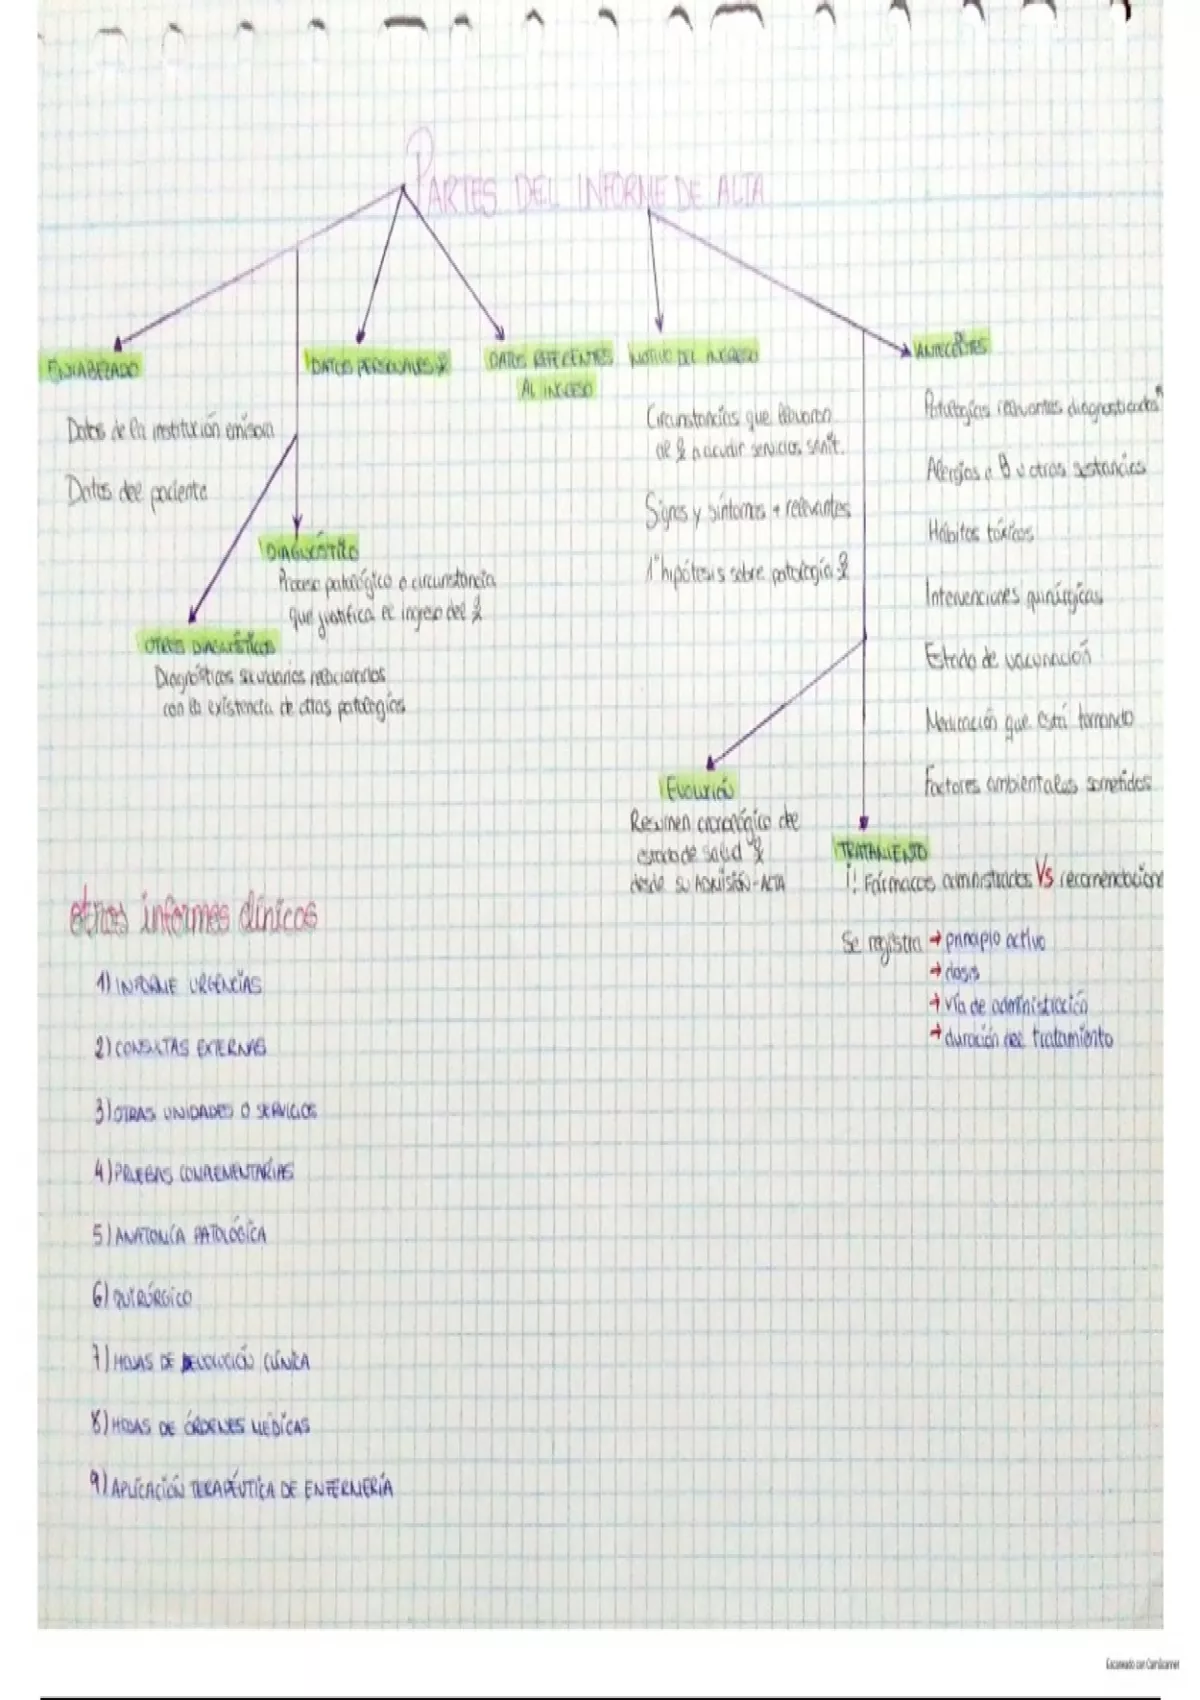 PARTES DEL INFORME DE ALTA
ENCABEZADO
Datos de la institución emisora
Datos del paciente
DATOS PERSONALES
DATOS REFERENTES
AL INGRESO
MOTIVO DEL INGRESO
Circunstancias que llevaron
al a acudir servicios sanit.
Signos y síntomas + relevantes
1ª hipótesis sobre patología
ANTECEDENTES
Patologías relevantes diagnosticadas
Alergias a u otras sustancias
Hábitos tóxicos
Intervenciones quirúrgicas
Estado de vacunación
Medicación que está tomando
Factores ambientales sometidos
DIAGNÓSTICO
Proceso patológico o circunstancia
que justifica el ingreso del
OTROS DIAGNÓSTICOS
Diagnósticos secundarios relacionados
con la existencia de otras patologías
EVOLUCIÓN
Resumen cronológico del
estado de salud
desde su ADMISIÓN-ALTA
TRATAMIENTO
¡! Fármacos administrados Vs recomendacione
Se registra → principio activo
→ dosis
→ vía de administración
→ duración del tratamiento
otros informes clínicos
1) INFORME URGENCIAS
2) CONSULTAS EXTERNAS
3) OTRAS UNIDADES O SERVICIOS
4) PRUEBAS COMPLEMENTARIAS
5) ANATOMÍA PATOLÓGICA
6) QUIRÚRGICO
7) HOJAS DE EVOLUCIÓN CLÍNICA
8) HOJAS DE ÓRDENES MÉDICAS
9) APLICACIÓN TERAPÉUTICA DE ENFERMERÍA
Escaneado con CamScanner